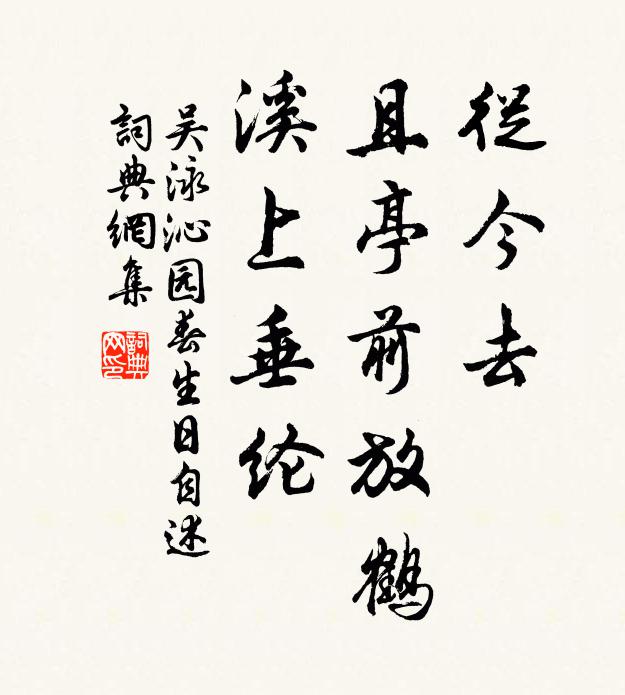 從今去
且亭前放鶴
溪上垂纶
吴泳沁园春生日自述
詞典網集
詞典
网印